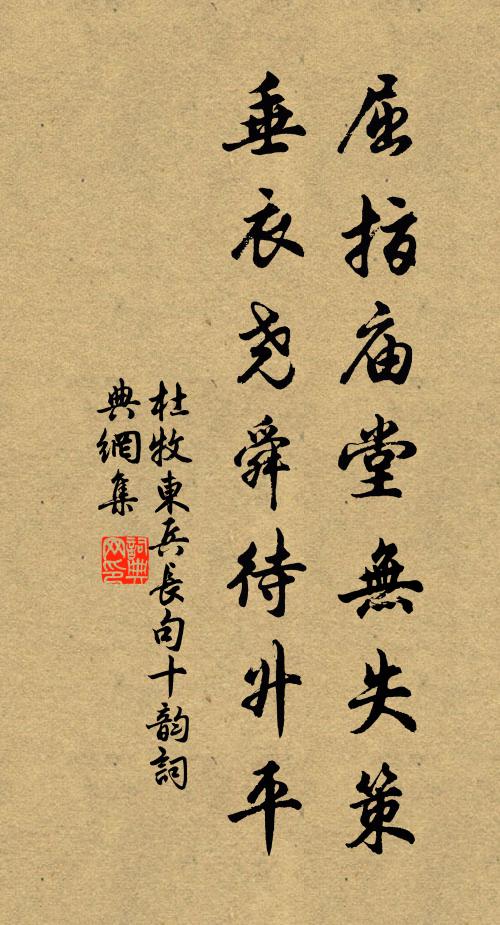 屈指庙堂無失策
垂衣尧舜待升平
杜牧東兵長句十韵詞
典網集
詞典
网印